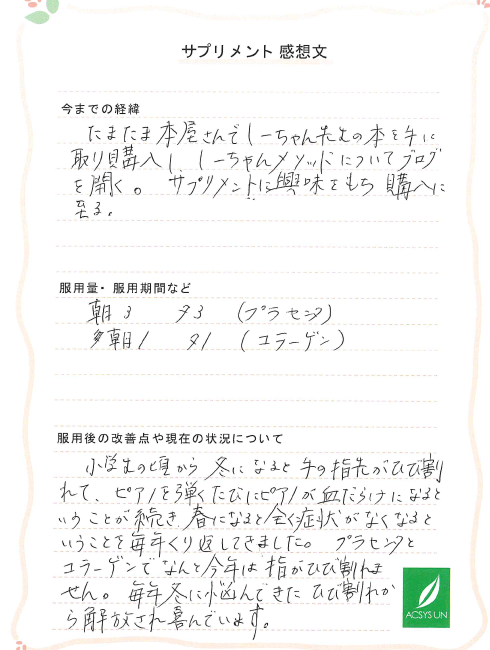 サプリメント 感想文
今までの経緯
たまたま本屋さんでしーちゃん先生の本を手に
取り購入し、しーちゃんメソッドについてブログ
を開く。 サプリメントに興味をもち 購入に
至る。
服用量・服用期間など
朝3 夕3 (プラセンタ)
朝1 夕1 (コラーゲン)
服用後の改善点や現在の状況について
小学生の頃から 冬になると 手の指先がひび割
れて、ピアノを弾くたびにピアノが血だらけになると
いうことが続き 春になると全く症状がなくなると
いうことを毎年くり返してきました。 プラセンタと
コラーゲンでなんと今年は 指がひび割れま
せん。 毎年 冬に悩んできた ひび割れか
ら解放され喜んでいます。
ACSYS UN